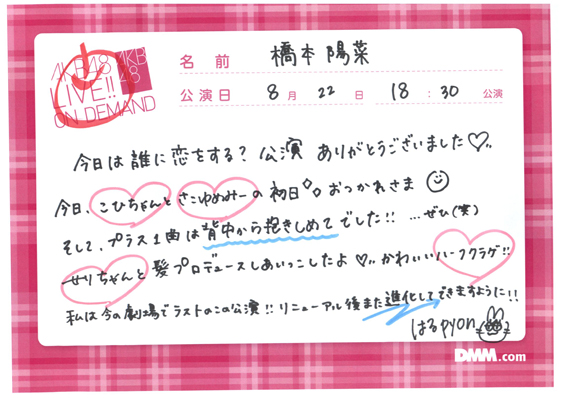 AKB48
LIVE!!
ON DEMAND
AKB
48
名前 橋本 陽菜
公演日 8月 22日 18:30 公演
今日は誰に恋をする? 公演 ありがとうございました♡
今日、こひちゃんと さこゆめみーの 初日 おつかれさま
そして、プラス1曲は背中から抱きしめてでした!! …ぜひ(笑)
せりちゃんと髪プロデュースしあいっこしたよ♡ かわいいハーフクラゲ!!
私は今の劇場でラストのこの公演!! リニューアル後また進化してできますように!!
はるpyon
DMM.com